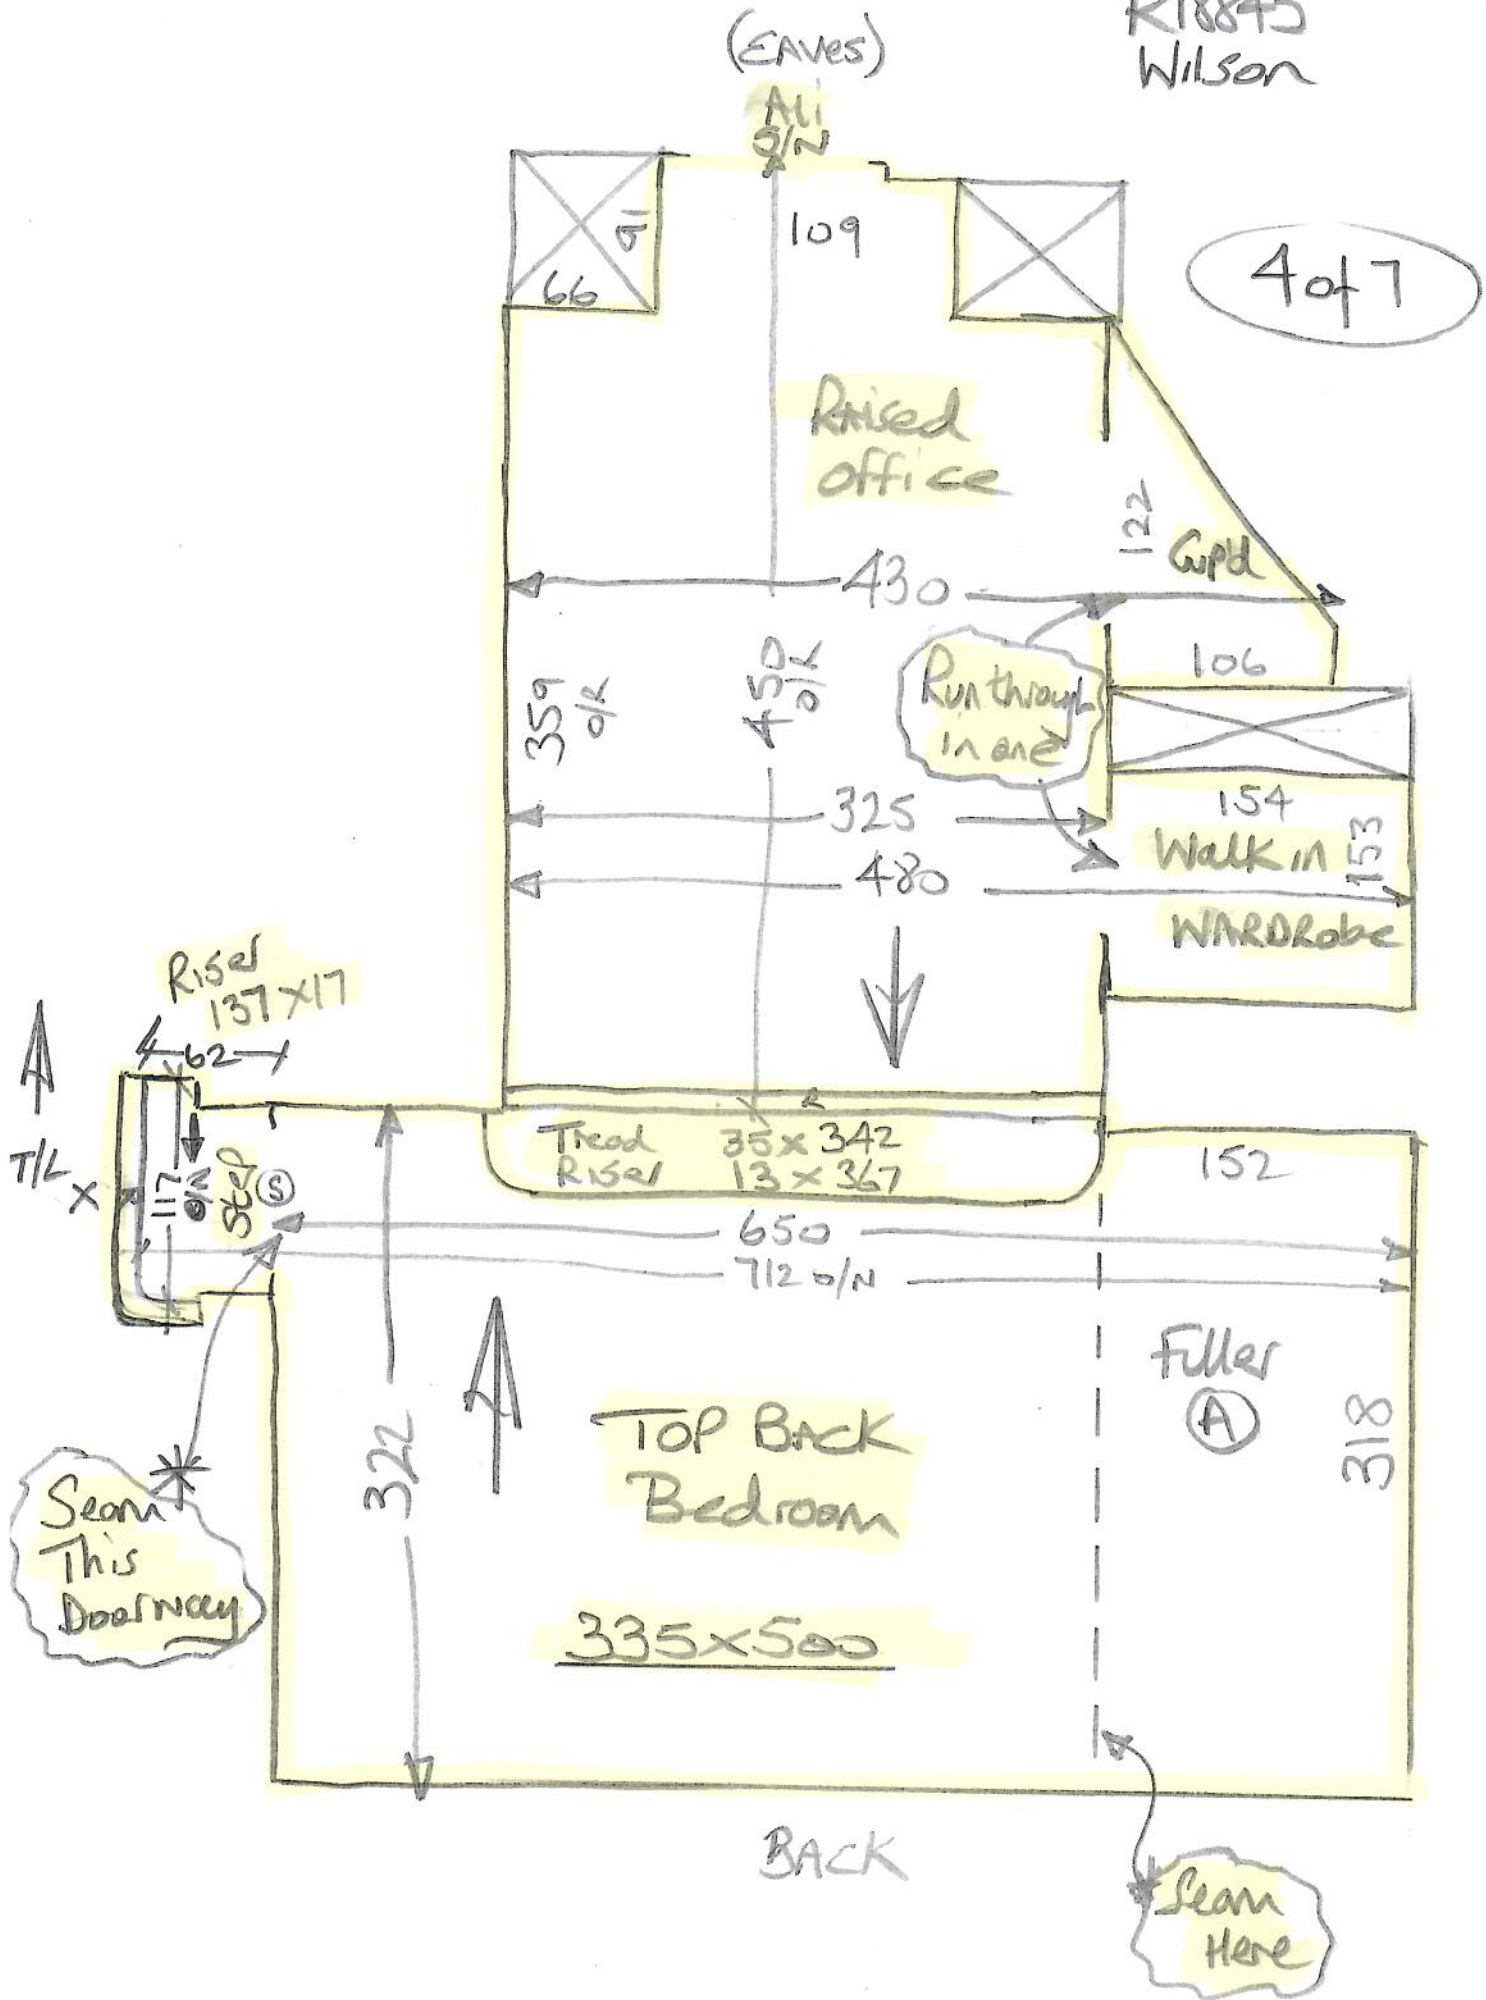 (EAVES)
K18845
Wilson
Ali
O/N
91
109
66
4 of 7
Raised
office
122
Cup'd
430
359
o/R
450
o/R
Run through
in one
106
325
154
Walk in
153
480
WARDRobe
Riser
137 x 17
62
T/L
X
117
O/N
Step
S
Tread 35 x 342
Riser 13 x 367
152
650
712 O/N
322
Filler
A
318
TOP BACK
Bedroom
335 x 500
Seam
This
Doorway
BACK
Seam
Here